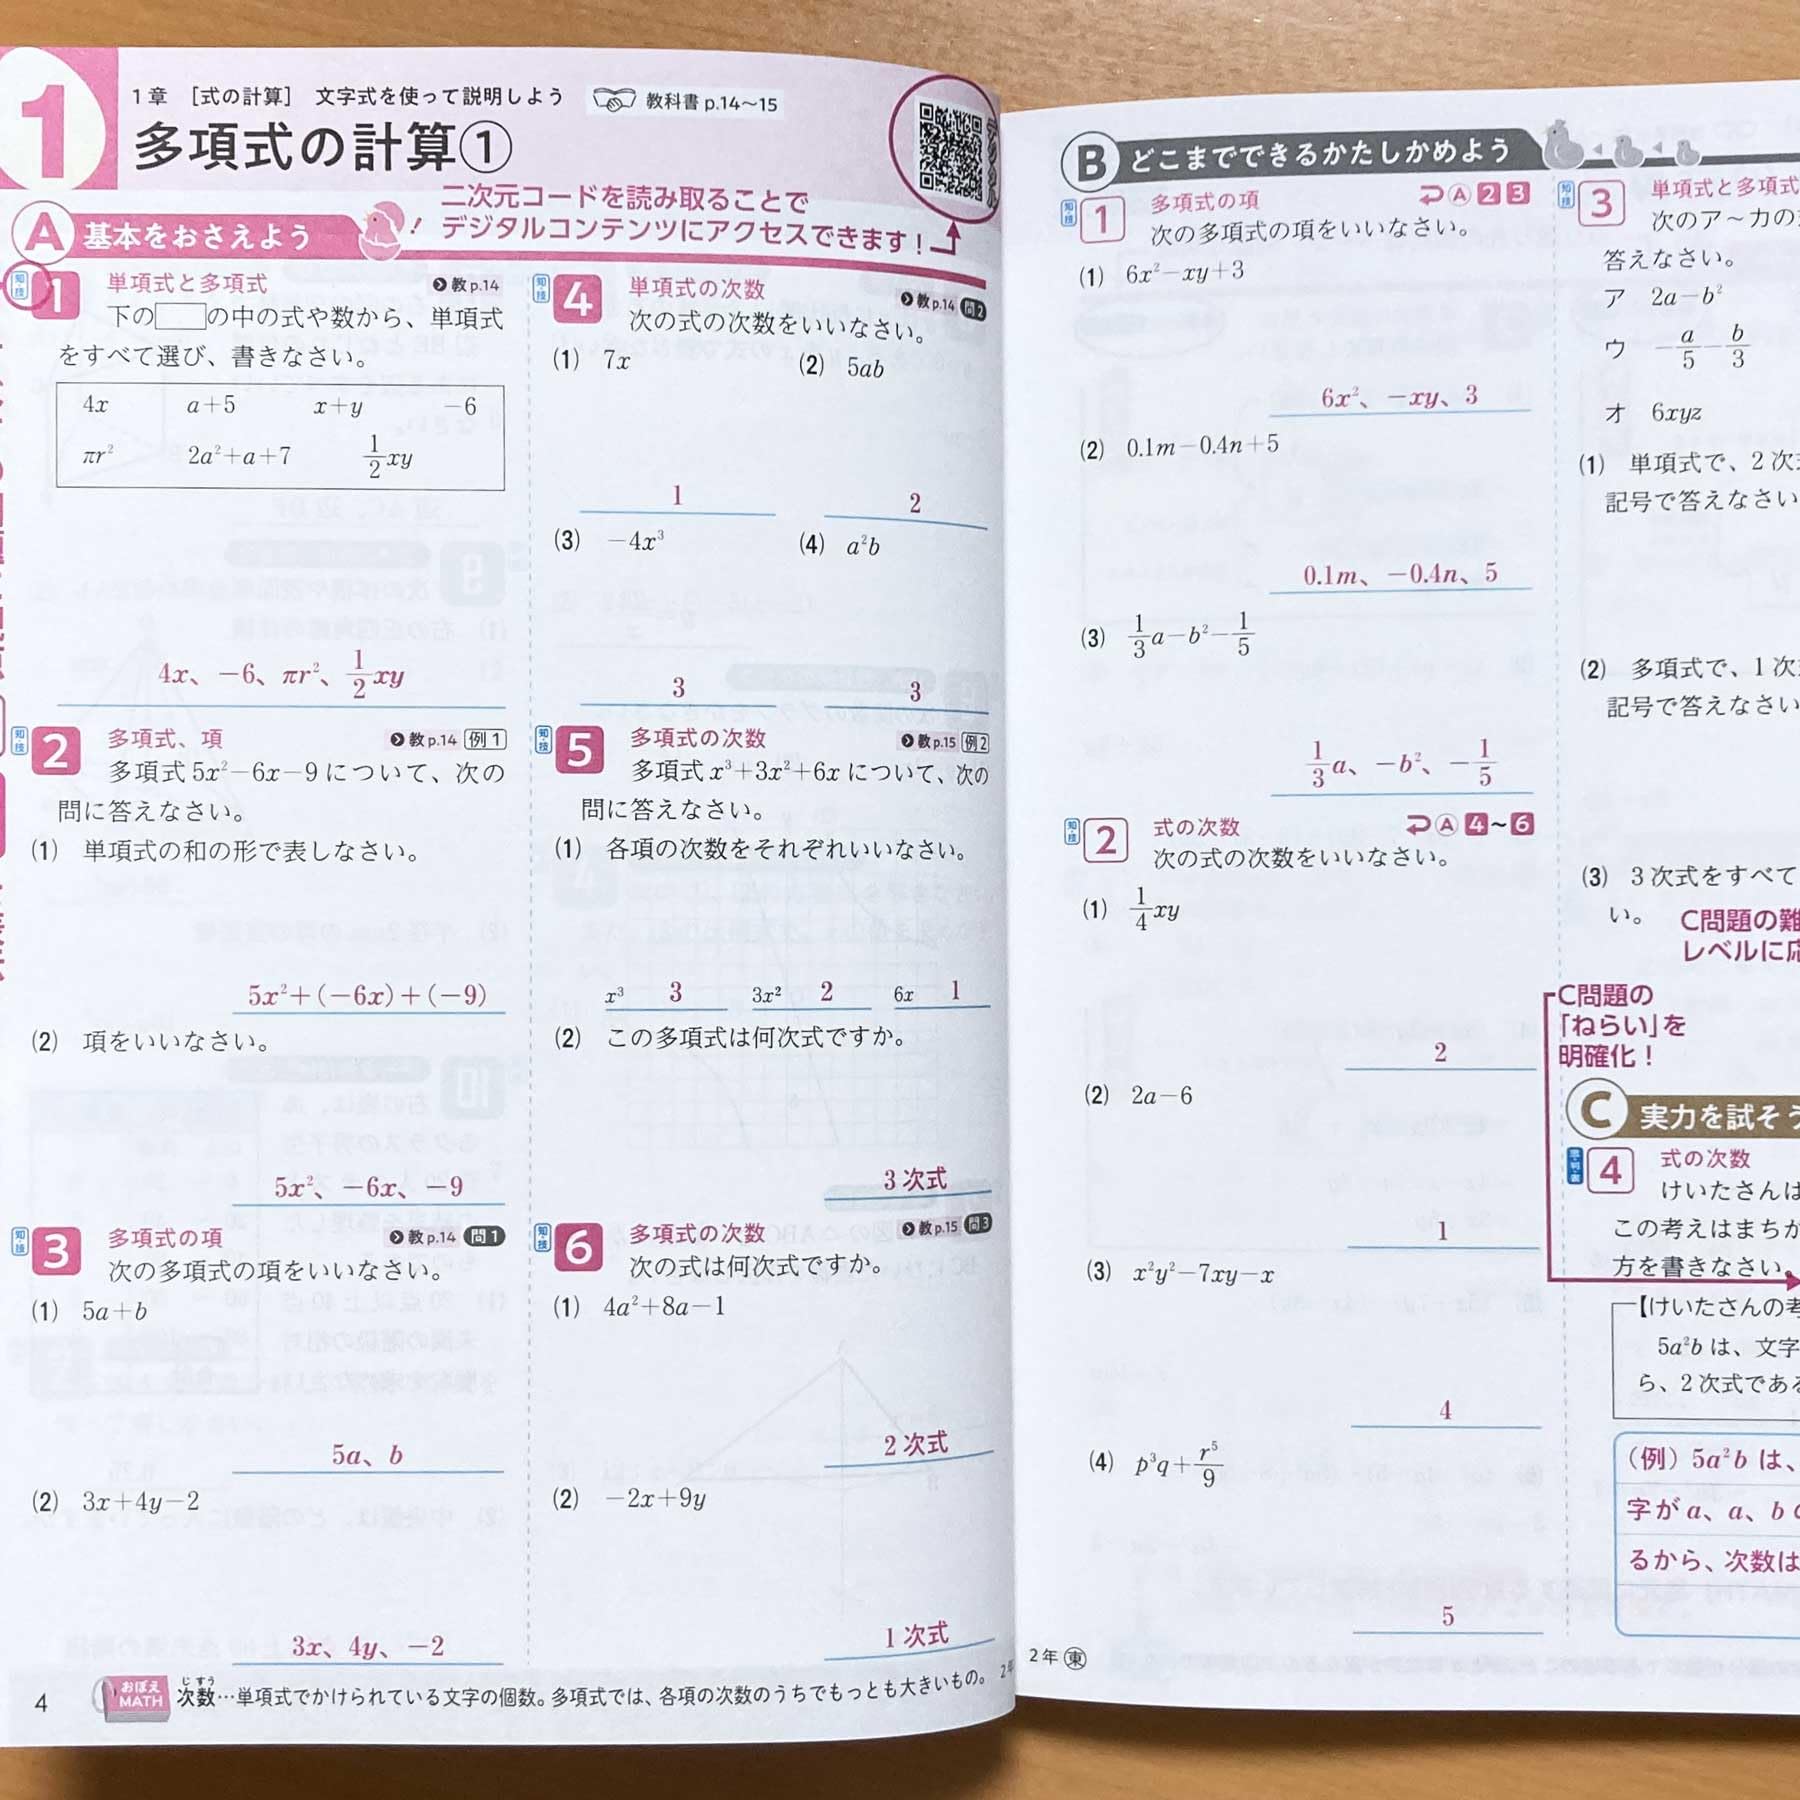 1
1章 [式の計算] 文字式を使って説明しよう 教科書 p.14〜15
多項式の計算①
二次元コードを読み取ることで
デジタルコンテンツにアクセスできます！
A 基本をおさえよう
知・技 1 単項式と多項式 教p.14
下の□の中の式や数から、単項式
をすべて選び、書きなさい。
4x a+5 x+y −6
πr² 2a²+a+7 1/2xy
4x、−6、πr²、1/2xy
知・技 2 多項式、項 教p.14 例1
多項式 5x²−6x−9 について、次の
問に答えなさい。
(1) 単項式の和の形で表しなさい。
5x²+(−6x)+(−9)
(2) 項をいいなさい。
5x²、−6x、−9
知・技 3 多項式の項 教p.14 問1
次の多項式の項をいいなさい。
(1) 5a+b
5a、b
(2) 3x+4y−2
3x、4y、−2
知・技 4 単項式の次数 教p.14 問2
次の式の次数をいいなさい。
(1) 7x (2) 5ab
1 2
(3) −4x³ (4) a²b
3 3
知・技 5 多項式の次数 教p.15 例2
多項式 x³+3x²+6x について、次の
問に答えなさい。
(1) 各項の次数をそれぞれいいなさい。
x³ 3 3x² 2 6x 1
(2) この多項式は何次式ですか。
3次式
知・技 6 多項式の次数 教p.15 問3
次の式は何次式ですか。
(1) 4a²+8a−1
2次式
(2) −2x+9y
1次式
4 おぼえMATH 次数…単項式でかけられている文字の個数。多項式では、各項の次数のうちでもっとも大きいもの。
じすう
B どこまでできるかたしかめよう
知・技 1 多項式の項 A 2 3
次の多項式の項をいいなさい。
(1) 6x²−xy+3
6x²、−xy、3
(2) 0.1m−0.4n+5
0.1m、−0.4n、5
(3) 1/3a−b²−1/5
1/3a、−b²、−1/5
知・技 2 式の次数 A 4〜6
次の式の次数をいいなさい。
(1) 1/4xy
2
(2) 2a−6
1
(3) x²y²−7xy−x
4
(4) p³q+r⁵/9
5
2年 東
知・技 3 単項式と多項式
次のア〜カの
答えなさい。
ア 2a−b²
ウ −a/5−b/3
オ 6xyz
(1) 単項式で、2次
記号で答えなさい
(2) 多項式で、1次
記号で答えなさい
(3) 3次式をすべて
い。
C問題の難
レベルに応
C問題の
「ねらい」を
明確化！
C 実力を試そう
思・判・表 4 式の次数
けいたさんは
この考えはまちが
方を書きなさい。
【けいたさんの考
5a²b は、文字
ら、2次式である
(例) 5a²b は、
字が a、a、b
るから、次数は